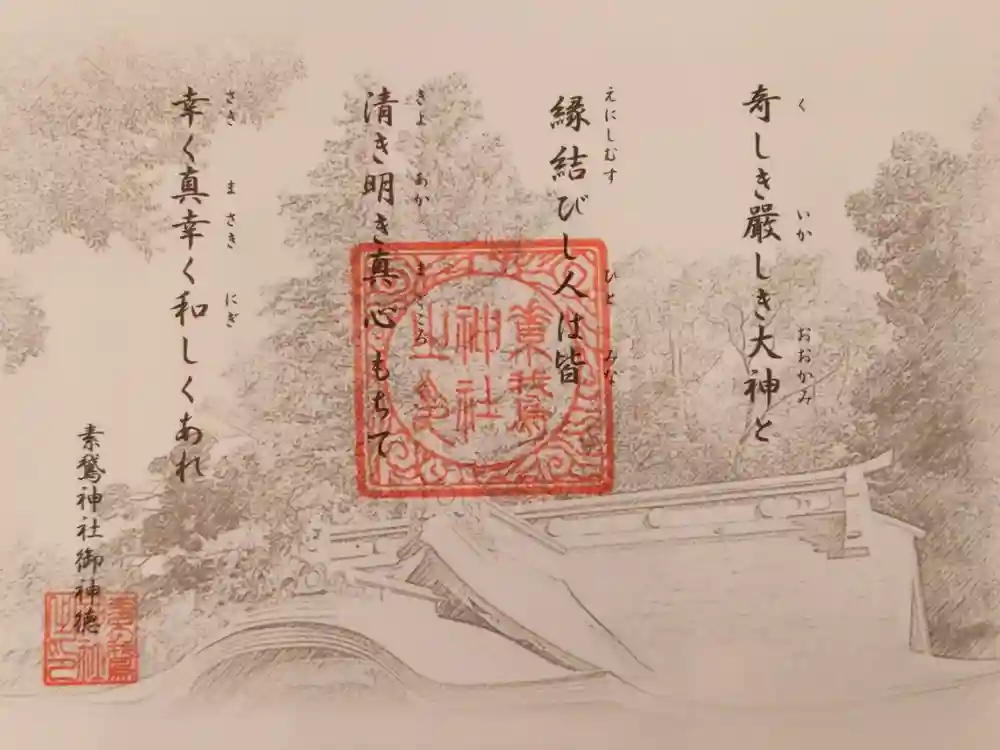 奇しき嚴しき大神と
く いか おおかみ
縁結びし人は皆
えにしむす ひと みな
清き明き真心もちて
きよ あか まごころ
幸く真幸く和しくあれ
さき まさき にぎ
素鵞神社御神徳
素鵞
神社
之印
素鵞
社
之印